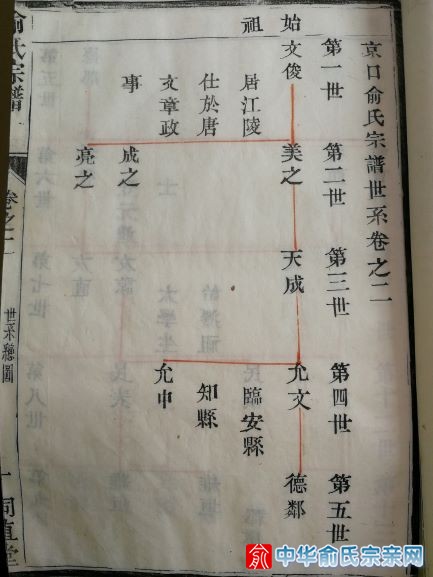 京口俞氏宗譜世系卷之二
第一世
第二世
第三世
第四世
第五世
始祖
文俊
美之
天成
允文
德鄰
居江陵
仕於唐
文章政
事
成之
亮之
臨安縣
知縣
允中
俞氏宗譜
卷之二
世系總圖
一
同直堂
中华俞氏宗亲网